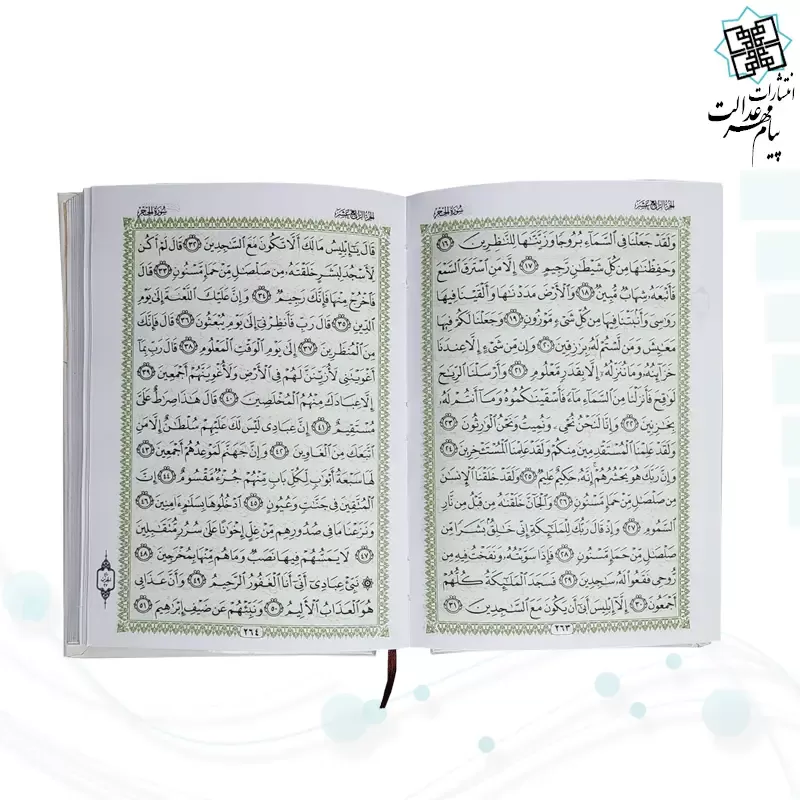 انتشارات
پیام مهر عدالت
الجزء الرابع عشر سورة الحجر
وَلَقَدْ جَعَلْنَا فِى ٱلسَّمَآءِ بُرُوجًا وَزَيَّنَّـٰهَا لِلنَّـٰظِرِينَ ﴿١٦﴾
وَحَفِظْنَـٰهَا مِن كُلِّ شَيْطَـٰنٍ رَّجِيمٍ ﴿١٧﴾ إِلَّا مَنِ ٱسْتَرَقَ ٱلسَّمْعَ
فَأَتْبَعَهُۥ شِهَابٌ مُّبِينٌ ﴿١٨﴾ وَٱلْأَرْضَ مَدَدْنَـٰهَا وَأَلْقَيْنَا فِيهَا
رَوَٰسِىَ وَأَنۢبَتْنَا فِيهَا مِن كُلِّ شَىْءٍ مَّوْزُونٍ ﴿١٩﴾ وَجَعَلْنَا لَكُمْ فِيهَا
مَعَـٰيِشَ وَمَن لَّسْتُمْ لَهُۥ بِرَٰزِقِينَ ﴿٢٠﴾ وَإِن مِّن شَىْءٍ إِلَّا عِندَنَا
خَزَآئِنُهُۥ وَمَا نُنَزِّلُهُۥٓ إِلَّا بِقَدَرٍ مَّعْلُومٍ ﴿٢١﴾ وَأَرْسَلْنَا ٱلرِّيَـٰحَ
لَوَٰقِحَ فَأَنزَلْنَا مِنَ ٱلسَّمَآءِ مَآءً فَأَسْقَيْنَـٰكُمُوهُ وَمَآ أَنتُمْ لَهُۥ
بِخَـٰزِنِينَ ﴿٢٢﴾ وَإِنَّا لَنَحْنُ نُحْىِۦ وَنُمِيتُ وَنَحْنُ ٱلْوَٰرِثُونَ ﴿٢٣﴾
وَلَقَدْ عَلِمْنَا ٱلْمُسْتَقْدِمِينَ مِنكُمْ وَلَقَدْ عَلِمْنَا ٱلْمُسْتَـْٔخِرِينَ ﴿٢٤﴾
وَإِنَّ رَبَّكَ هُوَ يَحْشُرُهُمْ إِنَّهُۥ حَكِيمٌ عَلِيمٌ ﴿٢٥﴾ وَلَقَدْ خَلَقْنَا ٱلْإِنسَـٰنَ
مِن صَلْصَـٰلٍ مِّنْ حَمَإٍ مَّسْنُونٍ ﴿٢٦﴾ وَٱلْجَآنَّ خَلَقْنَـٰهُ مِن قَبْلُ مِن نَّارِ
ٱلسَّمُومِ ﴿٢٧﴾ وَإِذْ قَالَ رَبُّكَ لِلْمَلَـٰٓئِكَةِ إِنِّى خَـٰلِقٌۢ بَشَرًا مِّن
صَلْصَـٰلٍ مِّنْ حَمَإٍ مَّسْنُونٍ ﴿٢٨﴾ فَإِذَا سَوَّيْتُهُۥ وَنَفَخْتُ فِيهِ مِن
رُّوحِى فَقَعُوا۟ لَهُۥ سَـٰجِدِينَ ﴿٢٩﴾ فَسَجَدَ ٱلْمَلَـٰٓئِكَةُ كُلُّهُمْ
أَجْمَعُونَ ﴿٣٠﴾ إِلَّآ إِبْلِيسَ أَبَىٰٓ أَن يَكُونَ مَعَ ٱلسَّـٰجِدِينَ ﴿٣١﴾
٢٦٣
الجزء الرابع عشر سورة الحجر
قَالَ يَـٰٓإِبْلِيسُ مَا لَكَ أَلَّا تَكُونَ مَعَ ٱلسَّـٰجِدِينَ ﴿٣٢﴾ قَالَ لَمْ أَكُن
لِّأَسْجُدَ لِبَشَرٍ خَلَقْتَهُۥ مِن صَلْصَـٰلٍ مِّنْ حَمَإٍ مَّسْنُونٍ ﴿٣٣﴾ قَالَ
فَٱخْرُجْ مِنْهَا فَإِنَّكَ رَجِيمٌ ﴿٣٤﴾ وَإِنَّ عَلَيْكَ ٱللَّعْنَةَ إِلَىٰ يَوْمِ
ٱلدِّينِ ﴿٣٥﴾ قَالَ رَبِّ فَأَنظِرْنِىٓ إِلَىٰ يَوْمِ يُبْعَثُونَ ﴿٣٦﴾ قَالَ فَإِنَّكَ
مِنَ ٱلْمُنظَرِينَ ﴿٣٧﴾ إِلَىٰ يَوْمِ ٱلْوَقْتِ ٱلْمَعْلُومِ ﴿٣٨﴾ قَالَ رَبِّ بِمَآ
أَغْوَيْتَنِى لَأُزَيِّنَنَّ لَهُمْ فِى ٱلْأَرْضِ وَلَأُغْوِيَنَّهُمْ أَجْمَعِينَ ﴿٣٩﴾
إِلَّا عِبَادَكَ مِنْهُمُ ٱلْمُخْلَصِينَ ﴿٤٠﴾ قَالَ هَـٰذَا صِرَٰطٌ عَلَىَّ
مُسْتَقِيمٌ ﴿٤١﴾ إِنَّ عِبَادِى لَيْسَ لَكَ عَلَيْهِمْ سُلْطَـٰنٌ إِلَّا مَنِ
ٱتَّبَعَكَ مِنَ ٱلْغَاوِينَ ﴿٤٢﴾ وَإِنَّ جَهَنَّمَ لَمَوْعِدُهُمْ أَجْمَعِينَ ﴿٤٣﴾
لَهَا سَبْعَةُ أَبْوَٰبٍ لِّكُلِّ بَابٍ مِّنْهُمْ جُزْءٌ مَّقْسُومٌ ﴿٤٤﴾ إِنَّ
ٱلْمُتَّقِينَ فِى جَنَّـٰتٍ وَعُيُونٍ ﴿٤٥﴾ ٱدْخُلُوهَا بِسَلَـٰمٍ ءَامِنِينَ ﴿٤٦﴾
وَنَزَعْنَا مَا فِى صُدُورِهِم مِّنْ غِلٍّ إِخْوَٰنًا عَلَىٰ سُرُرٍ مُّتَقَـٰبِلِينَ
﴿٤٧﴾ لَا يَمَسُّهُمْ فِيهَا نَصَبٌ وَمَا هُم مِّنْهَا بِمُخْرَجِينَ ﴿٤٨﴾
۞ نَبِّئْ عِبَادِىٓ أَنِّىٓ أَنَا ٱلْغَفُورُ ٱلرَّحِيمُ ﴿٤٩﴾ وَأَنَّ عَذَابِى
هُوَ ٱلْعَذَابُ ٱلْأَلِيمُ ﴿٥٠﴾ وَنَبِّئْهُمْ عَن ضَيْفِ إِبْرَٰهِيمَ ﴿٥١﴾
٢٦٤